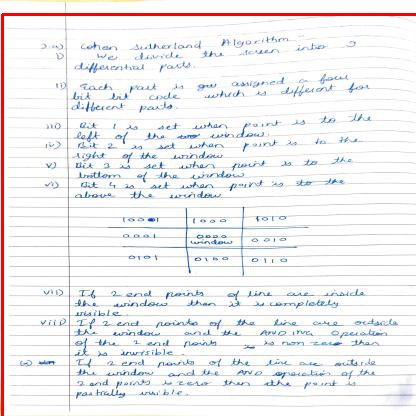 2.a) Cohen Sutherland Algorithm
i) We divide the screen into 9
differential parts.
ii) Each part is assigned a four
bit bit code which is different for
different parts.
iii) Bit 1 is set when point is to the
left of the window.
iv) Bit 2 is set when point is to the
right of the window
v) Bit 3 is set when point is to the
bottom of the window
vi) Bit 4 is set when point is to the
above the window
1001 1000 1010
0001 0000 window 0010
0101 0100 0110
vii) If 2 end points of line are inside
the window then it is completely
visible.
viii) If 2 end points of the line are outside
the window and the ANDING operation
of the 2 end points is non zero then
it is invisible.
If 2 end points of the line are outside
the window and the AND operation of the
2 end points is zero then the point is
partially visible.